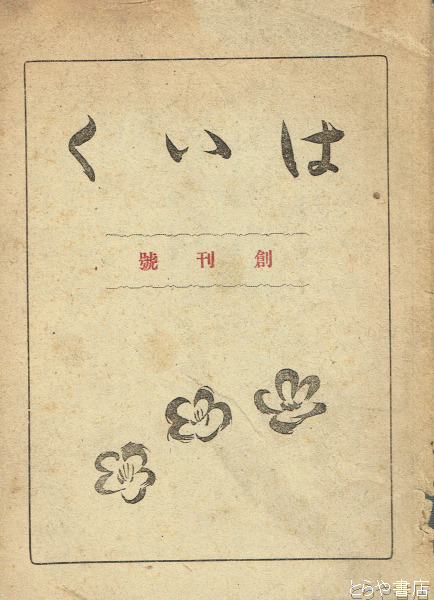 はいく
創刊號
とらや書店